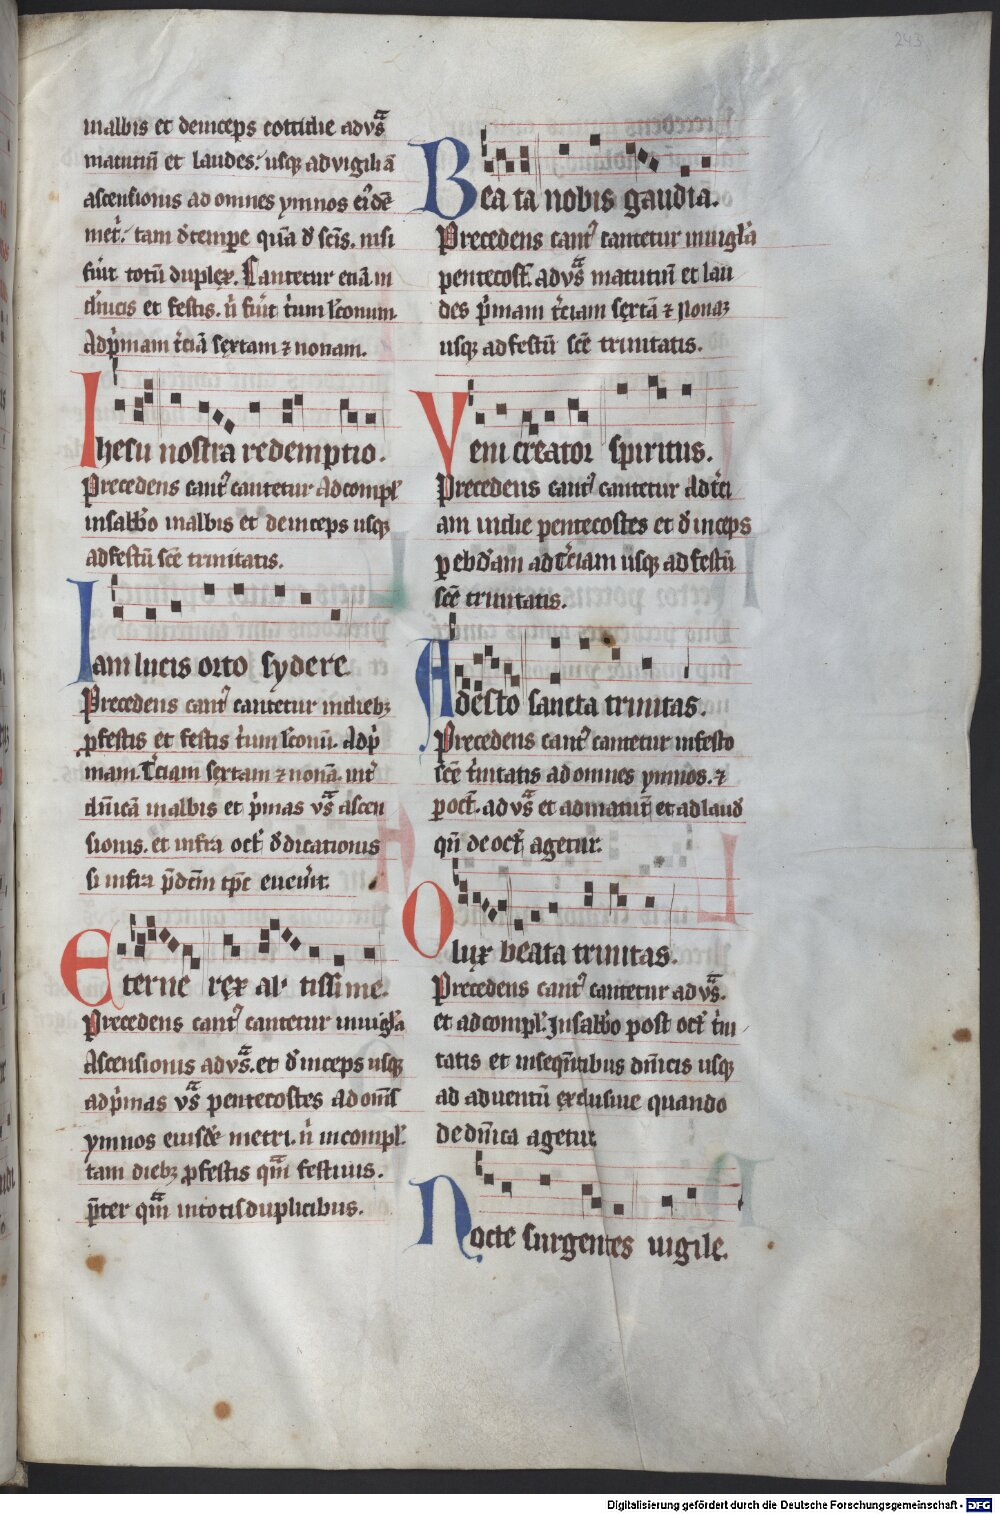 243
inalbis et deinceps cottidie ad vs̄a
matutiñ et laudes. usq; ad vigiliā
ascensionis ad omnes ymnos ei'dē
met'. tam d'tempe quā d' scīs. nisi
fu'it totū duplex. Cantetur etiā in
festis. n' fu't t'ium l'conum.
Ad p'mam t'ciā sextam ⁊ nonam.
Ihesu nostra redemptio.
Precedens cant' cantetur Ad compl'
in sabb'o inalbis et deinceps usq;
ad festū scē trinitatis.
Iam lucis orto sydere.
Precedens cant' cantetur in dieb;
pfestis et festis t'ium l'conū. Ad p'
mam. T'ciam sextam ⁊ nonā. int'
dn̄icā inalbis et p'mas vs̄a ascen
sionis. et infra oct' d'dicationis
si infra p̄dc̄m tp̄c euen'it.
Eterne rex altissime.
Precedens cant' cantetur in uigl'a
Ascensionis ad vs̄a. et d'inceps usq;
ad p'mas vs̄a pentecostes ad om̄s
ymnos eiusdē metri. n' in compl'.
tam dieb; pfestis qm̄ festiuis.
p̄ter qm̄ in totis duplicibus.
Beata nobis gaudia.
Precedens cant' cantetur in uigl'a
pentecost'. ad vs̄a matutiñ et lau
des p'mam t'ciam sextā ⁊ nonā
usq; ad festū scē trinitatis.
Veni creator spiritus.
Precedens cant' cantetur Ad t'ci
am in die pentecostes et d'inceps
p ebd'am ad t'ciam usq; ad festū
scē trinitatis.
Adesto sancta trinitas.
Precedens cant' cantetur in festo
scē t'nitatis ad omnes ymnos. ⁊
p oct'. ad vs̄a et ad matut' et ad laud'
qn̄ de oct' agetur.
O lux beata trinitas.
Precedens cant' cantetur ad vs̄a.
et ad compl'. In sabb'o post oct' t'ni
tatis et in seqn̄tibus dn̄icis usq;
ad aduentū exclusiue quando
de dn̄ica agetur
Nocte surgentes uigile.
Digitalisierung gefördert durch die Deutsche Forschungsgemeinschaft - DFG